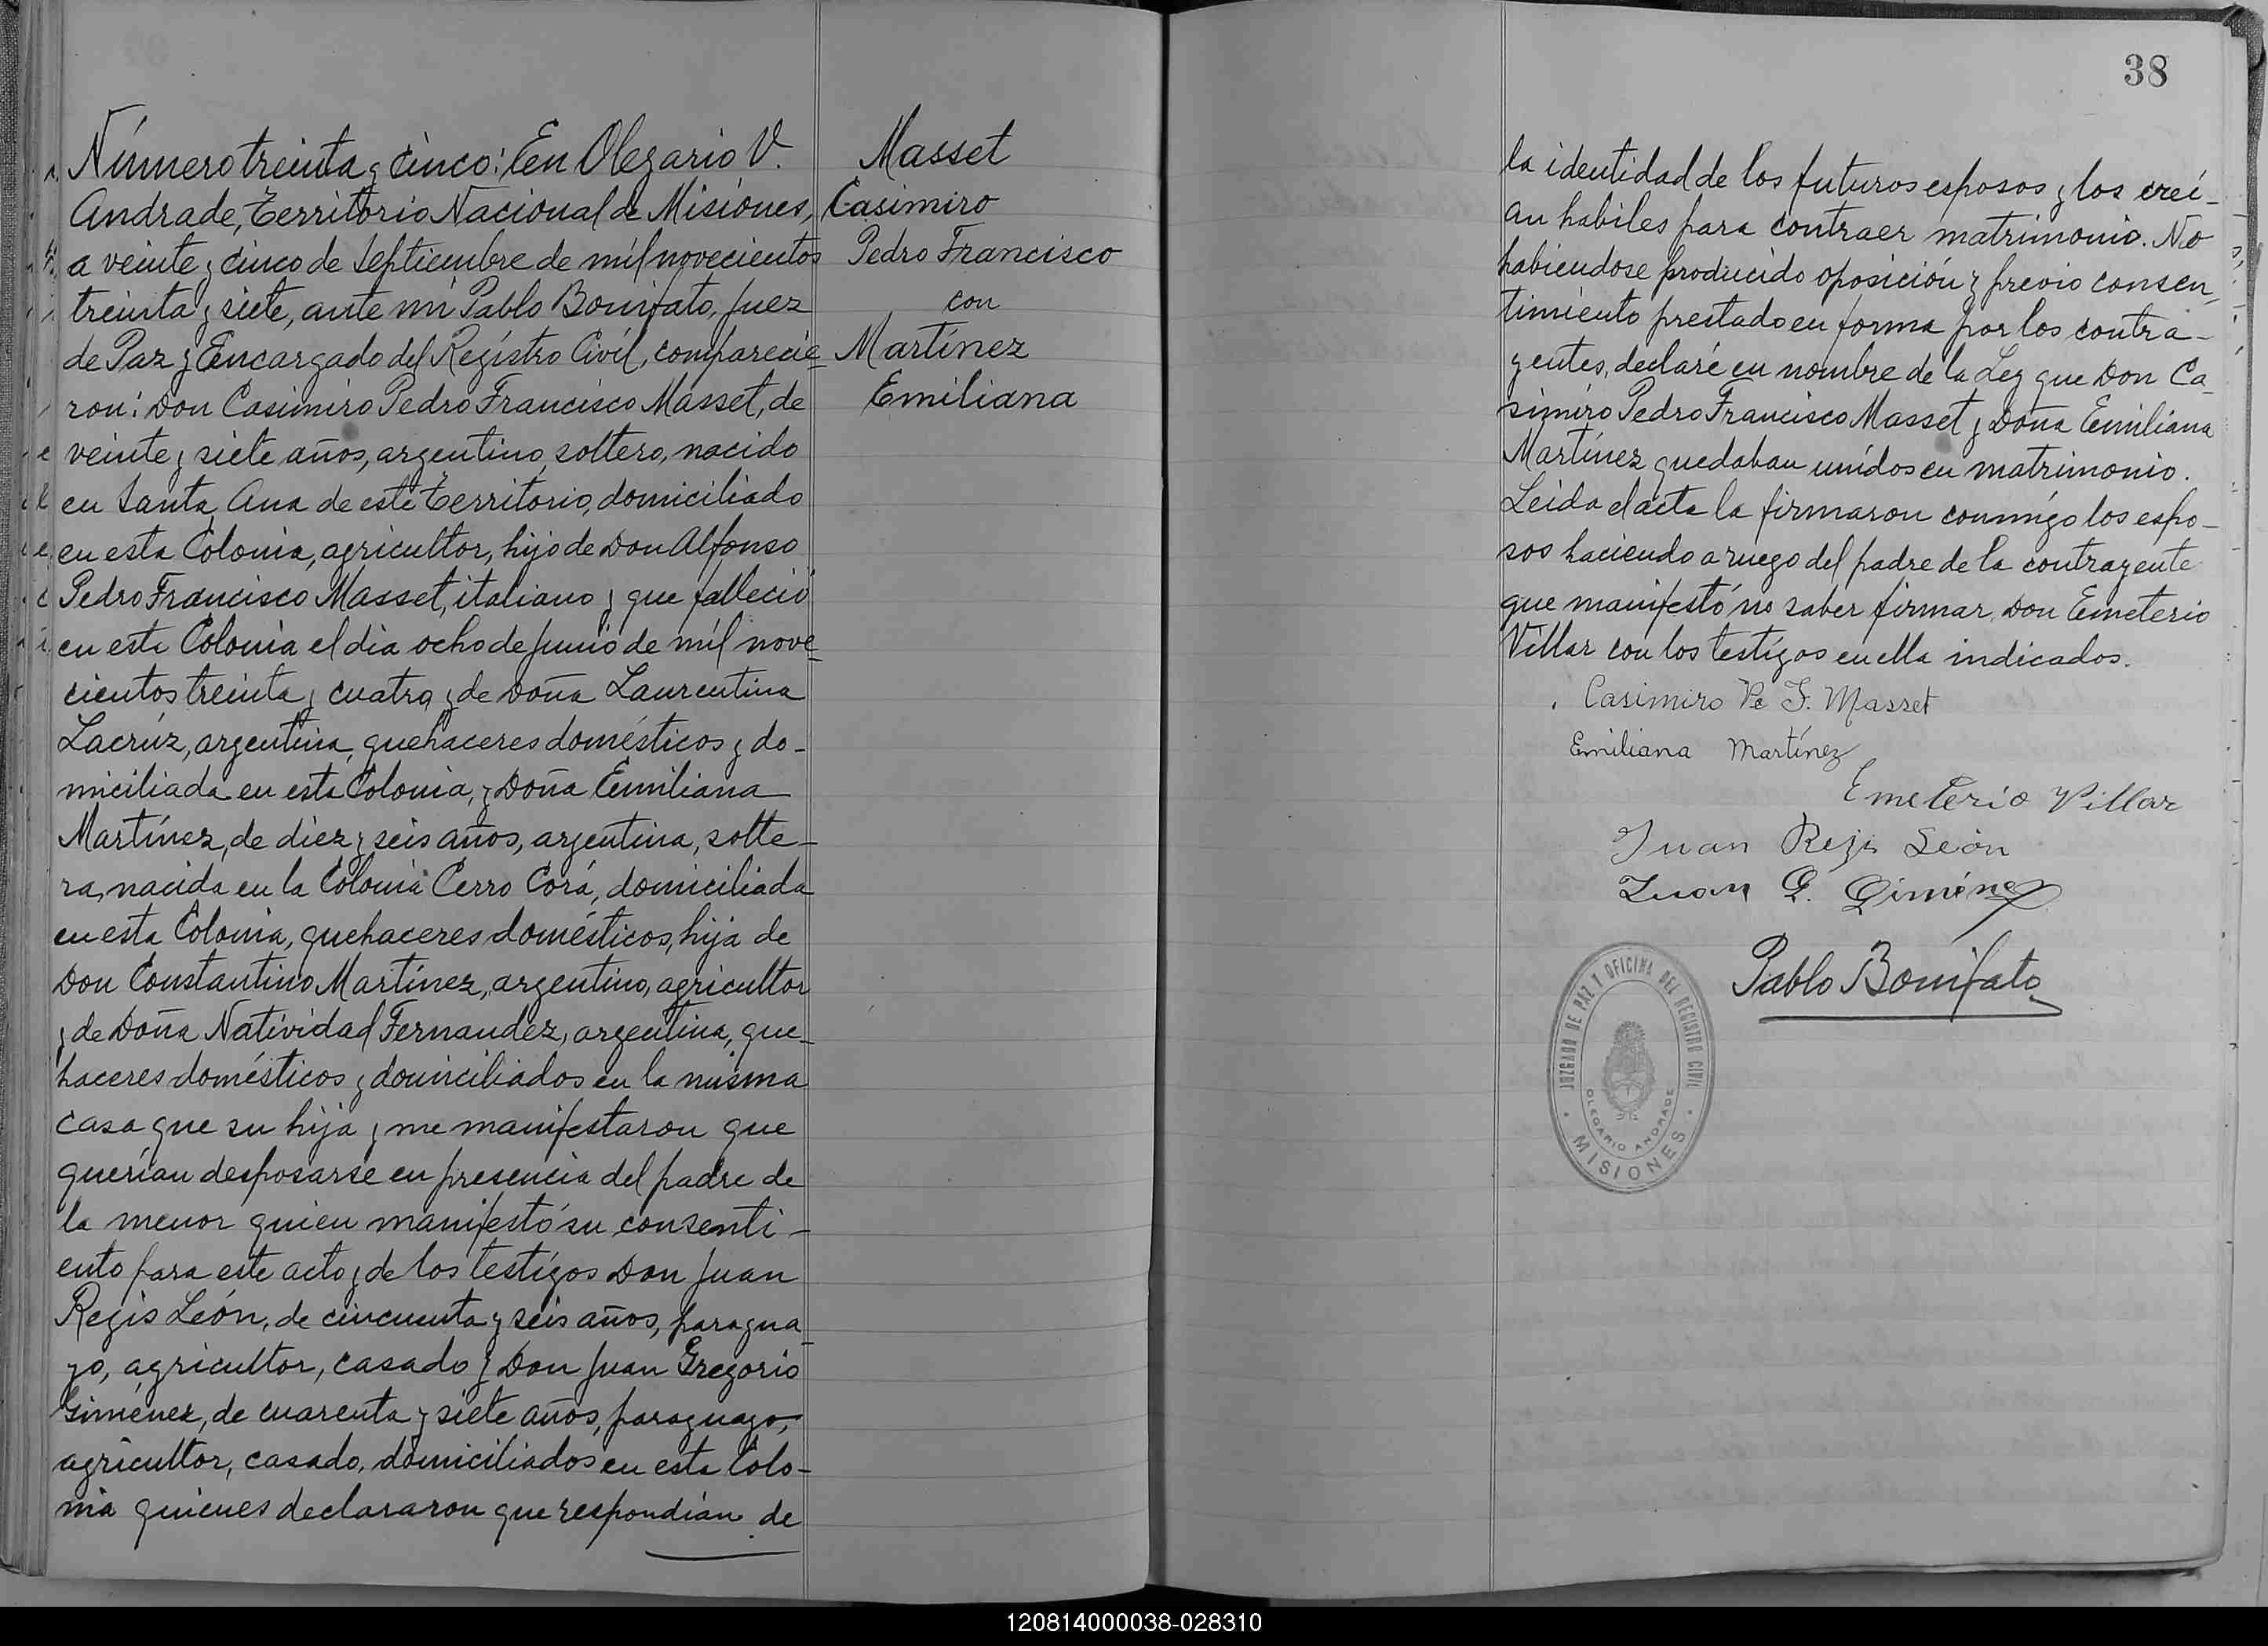 Número treinta y cinco: En Olegario V.
Andrade, Territorio Nacional de Misiones,
a veinte y cinco de Septiembre de mil novecientos
treinta y siete, ante mi Pablo Bonifato, Juez
de Paz y Encargado del Registro Civil, comparecie-
ron: Don Casimiro Pedro Francisco Masset, de
veinte y siete años, argentino, soltero, nacido
en Santa Ana de este Territorio, domiciliado
en esta Colonia, agricultor, hijo de Don Alfonso
Pedro Francisco Masset, italiano y que falleció
en esta Colonia el dia ocho de Junio de mil nove-
cientos treinta y cuatro y de Doña Laurentina
Lacrúz, argentina, quehaceres domésticos y do-
miciliada en esta Colonia, y Doña Emiliana
Martínez, de diez y seis años, argentina, solte-
ra, nacida en la Colonia Cerro Corá, domiciliada
en esta Colonia, quehaceres domésticos, hija de
Don Constantino Martínez, argentino, agricultor
y de Doña Natividad Fernandez, argentina, que-
haceres domésticos y domiciliados en la misma
casa que su hija y me manifestaron que
querían desposarse en presencia del padre de
la menor quien manifestó su consenti-
ento para este acto y de los testigos Don Juan
Regis León, de cincuenta y seis años, paragua-
yo, agricultor, casado y Don Juan Gregorio
Giménez, de cuarenta y siete años, paraguayo,
agricultor, casado, domiciliados en esta Colo-
nia quienes declararon que respondían de
Masset
Casimiro
Pedro Francisco
con
Martínez
Emiliana
38
la identidad de los futuros esposos y los creí-
an habiles para contraer matrimonio. No
habiendose producido oposición y previo consen-
timiento prestado en forma por los contra-
yentes, declaré en nombre de la Ley que Don Ca-
simiro Pedro Francisco Masset y Doña Emiliana
Martínez quedaban unidos en matrimonio.
Leida el acta la firmaron conmigo los espo-
sos haciendo a ruego del padre de la contrayente
que manifestó no saber firmar Don Emeterio
Villar con los testigos en ella indicados.
Casimiro Pe F. Masset
Emiliana Martínez
Emeterio Villar
Juan Rejis León
Juan G. Giménez
Pablo Bonifato
JUZGADO DE PAZ Y OFICINA DEL REGISTRO CIVIL
OLEGARIO ANDRADE
MISIONES
120814000038-028310